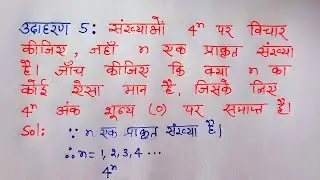 उदाहरण 5: संख्याओं 4ⁿ पर विचार
कीजिए, जहाँ n एक प्राकृत संख्या
है। जाँच कीजिए कि क्या n का
कोई ऐसा मान है, जिसके लिए
4ⁿ अंक शून्य (0) पर समाप्त है।
Sol: ∵ n एक प्राकृत संख्या है।
∴ n = 1, 2, 3, 4 ...
4ⁿ